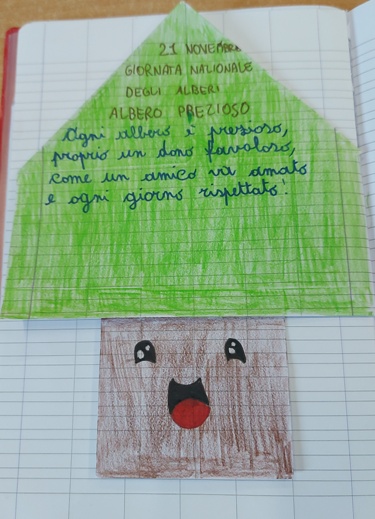 21 NOVEMBRE
GIORNATA NAZIONALE
DEGLI ALBERI
ALBERO PREZIOSO
Ogni albero è prezioso,
proprio un dono favoloso,
come un amico va amato
e ogni giorno rispettato!